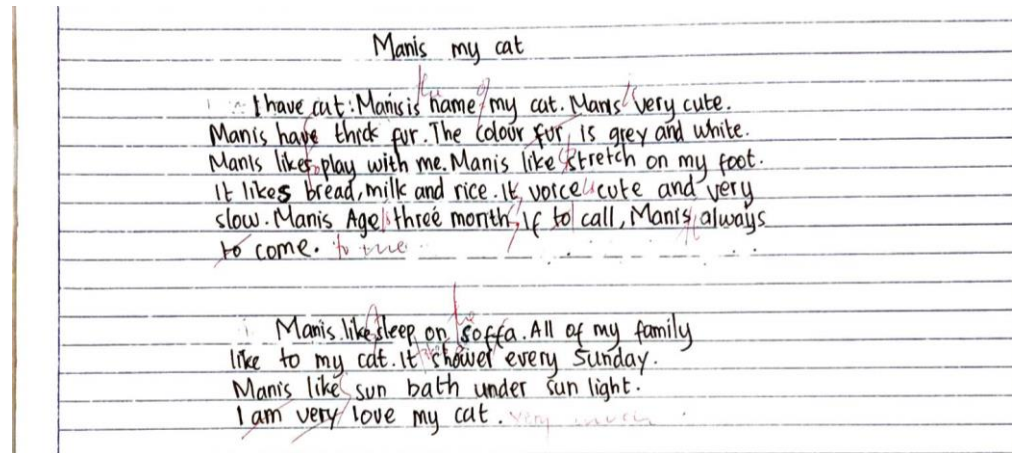 Manis my cat
I have cat: Manis is name my cat. Manis very cute.
Manis have thick fur. The colour fur is grey and white.
Manis likes play with me. Manis like stretch on my foot.
It likes bread, milk and rice. It voice cute and very
slow. Manis Age three month. If to call, Manis always
to come. to me
Manis like sleep on soffa. All of my family
like to my cat. It shower every Sunday.
Manis like sun bath under sun light.
I am very love my cat. very much